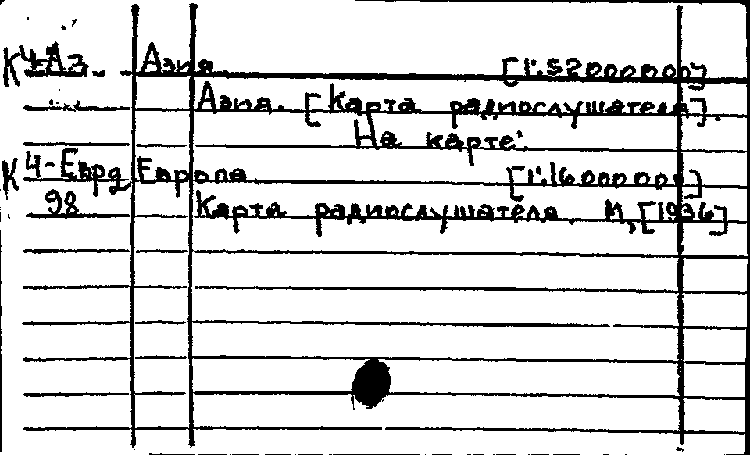 К 4-Аз Азия [1:52000000]
Азия. [Карта радиослушателя].
На карте:
К 4-Евр Европа [1:16000000]
98 Карта радиослушателя. М,[1936]